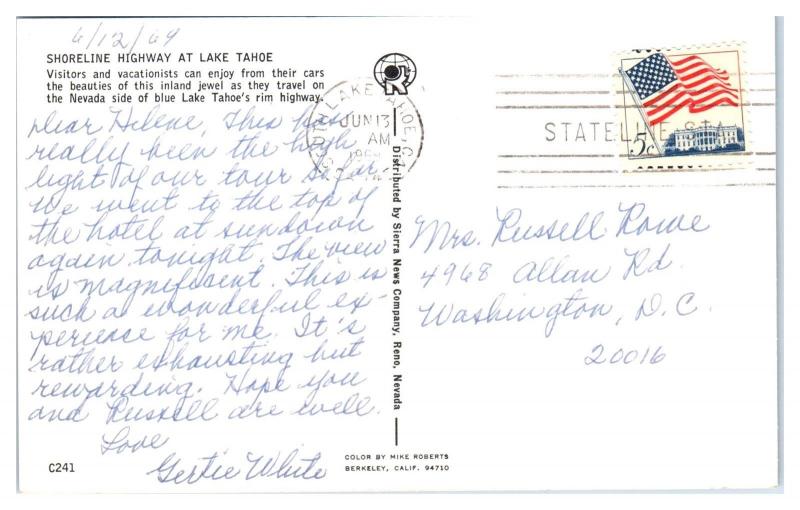 6/12/69
SHORELINE HIGHWAY AT LAKE TAHOE
Visitors and vacationists can enjoy from their cars
the beauties of this inland jewel as they travel on
the Nevada side of blue Lake Tahoe's rim highway.
Dear Helene, This has
really been the high
light of our tour so far.
We went to the top of
the hotel at sundown
again tonight. The view
is magnificent. This is
such a wonderful ex-
perience for me. It's
rather exhausting but
rewarding. Hope you
and Russell are well.
Love
Gertie White
C241
Distributed by Sierra News Company, Reno, Nevada
COLOR BY MIKE ROBERTS
BERKELEY, CALIF. 94710
SOUTH LAKE TAHOE, C
JUN 13
AM
STATELINE STA
5c
Mrs. Russell Rowe
4968 Allan Rd.
Washington, D.C.
20016